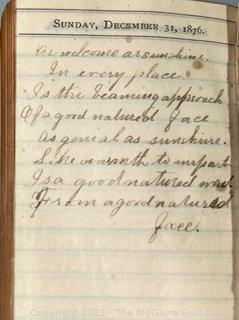 SUNDAY, DECEMBER 31, 1876.
As welcome as sunshine
In every place,
Is the beaming approach
Of a good natured face
As genial as sunshine.
Like warmth to impart
Is a good natured word
From a good natured
face.
Copyright 2023 - The McGuire Group